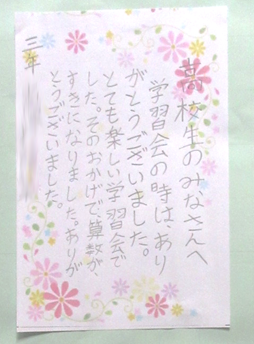 高校生のみなさんへ
学習会の時は、あり
がとうございました。
とても楽しい学習会で
した。そのおかげで、算数が、
すきになりました。ありが
とうございました。
三年